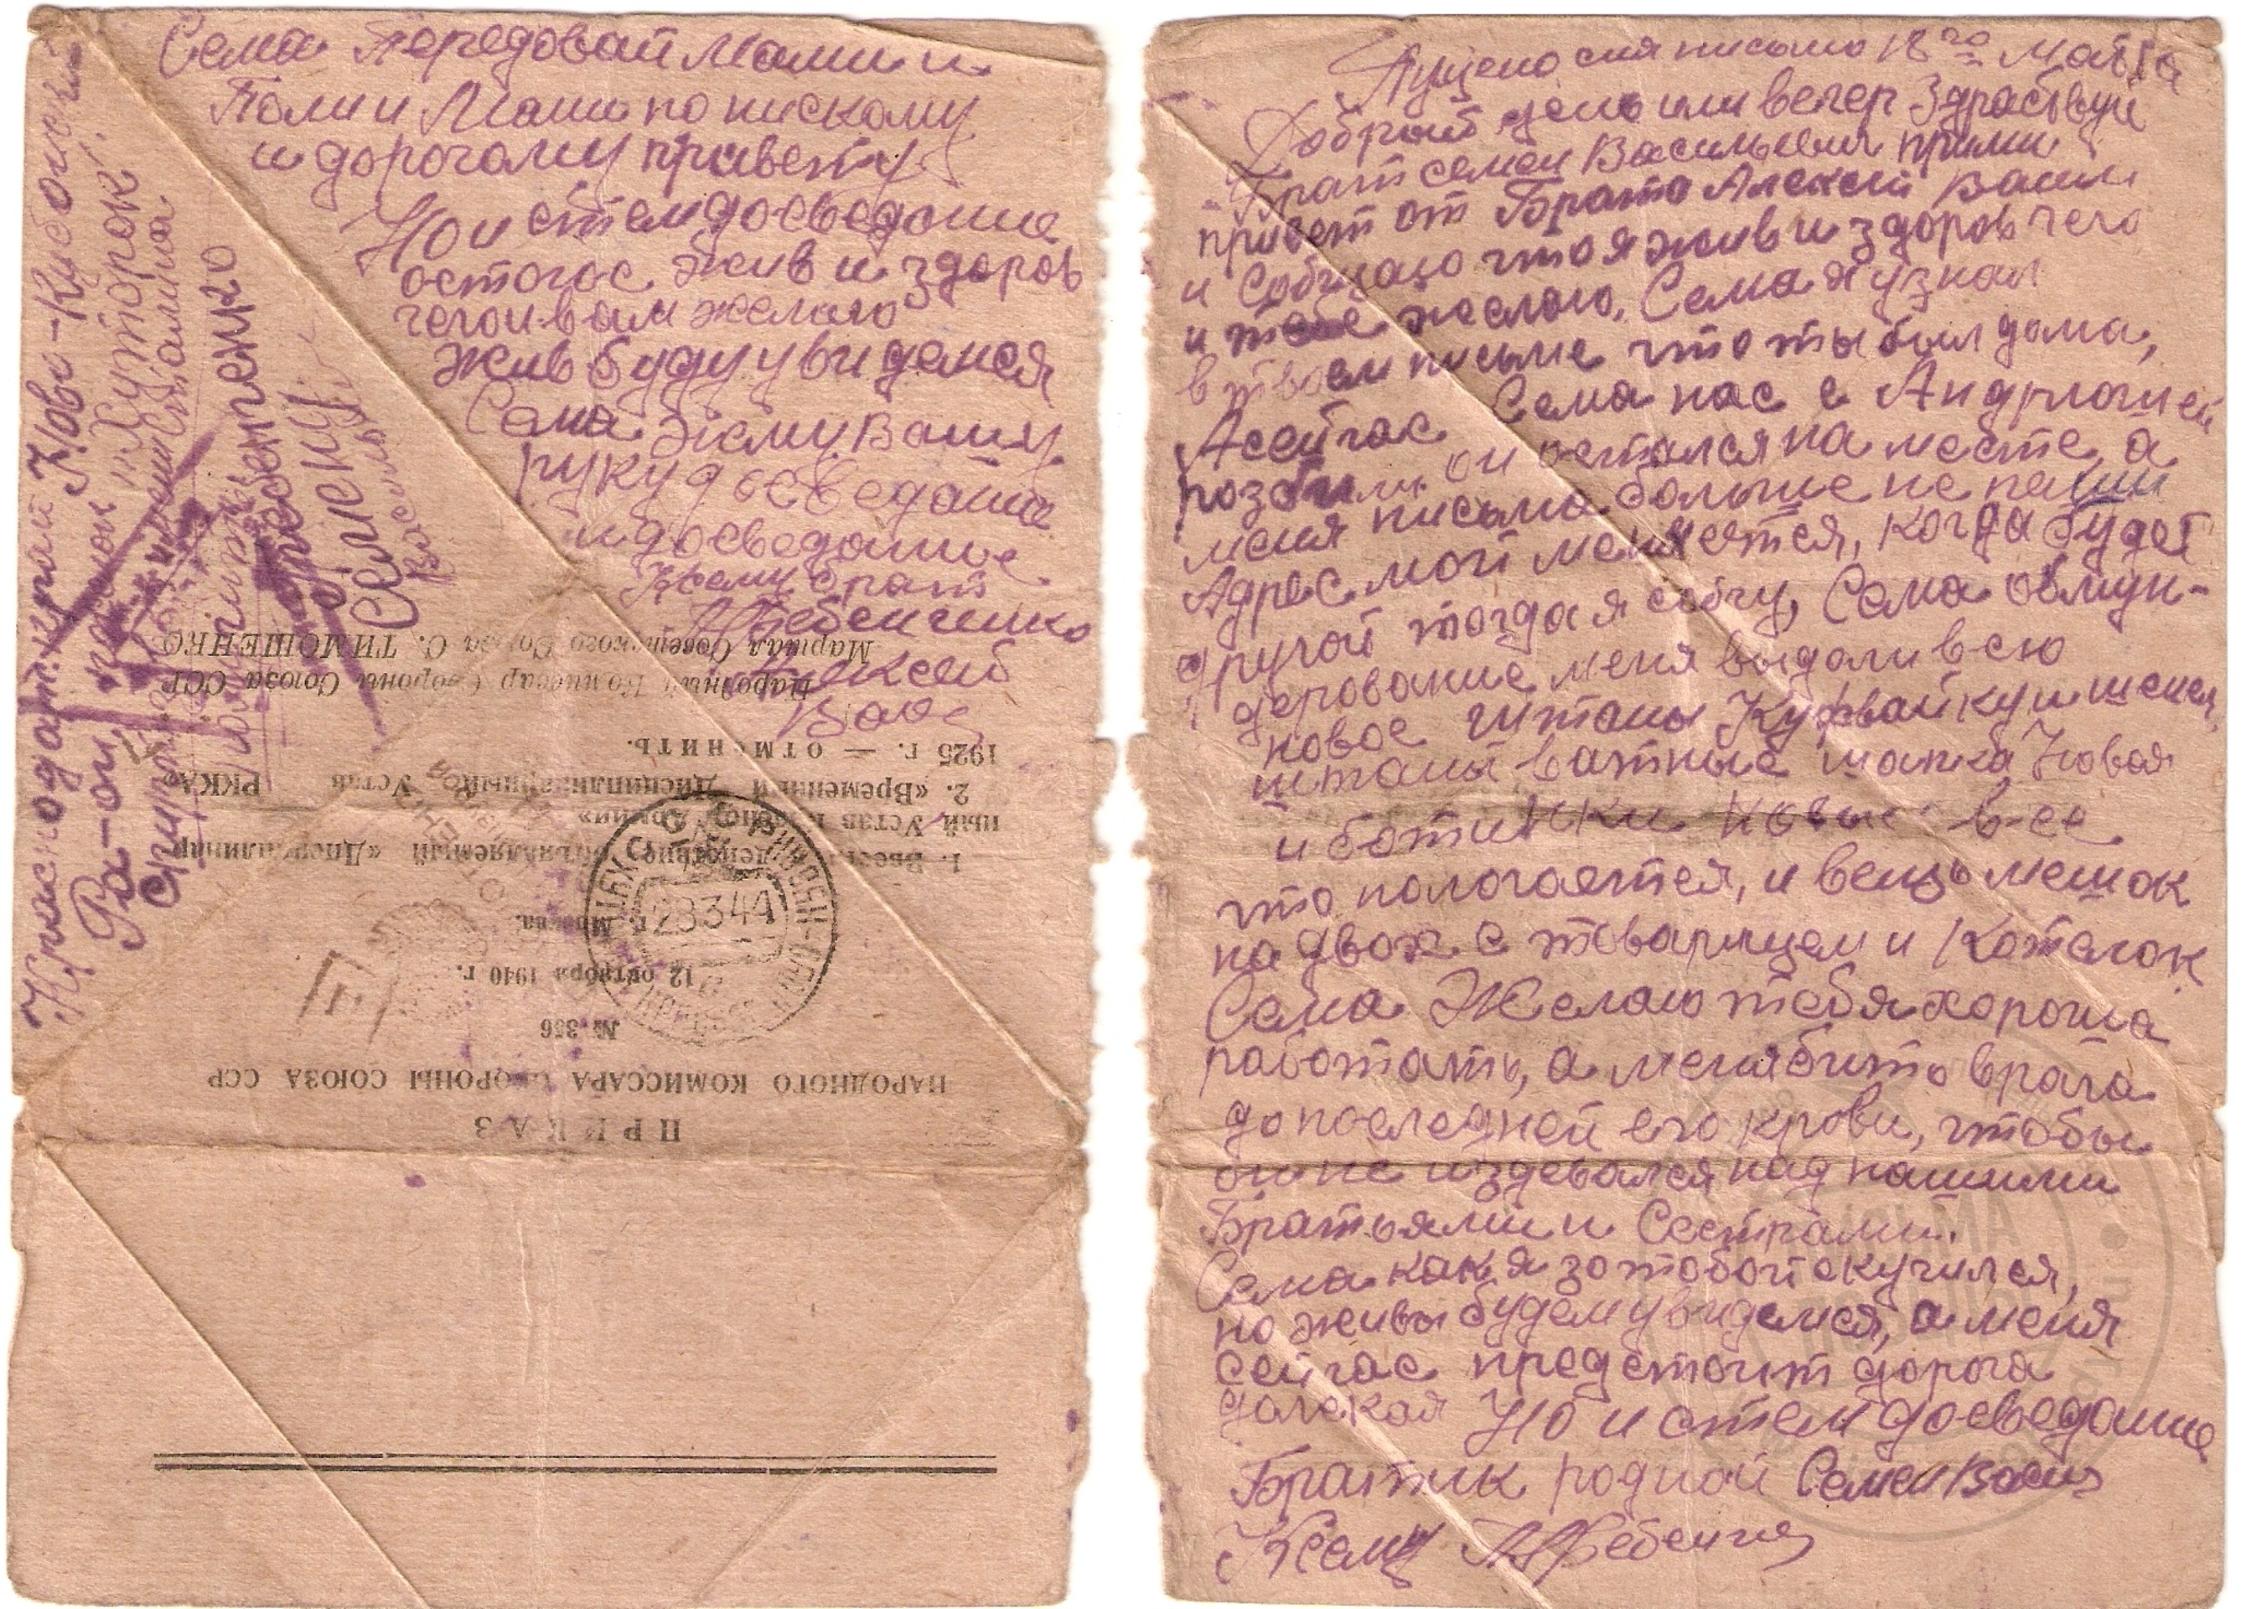 Пущено сия письмо 18го
Добрый день или вечер Здраствуй
Брат семен Васильевич прими
привет от Брата Алексей Васил
и Собщаю что я жив и здоров чего
и тебе желаю, Сема я узнал
в твоем письме что ты был дома,
А сейчас Сема нас с Андрюшей
розбили он остался на месте, а
меня письма больше не пиши
Адрес мой меняется, когда будет
другой тогда я собчу, Сема обмун-
дерование меня выдали всю
новое штаны Куфвайку и
штаны ватные шапка Новая
и ботинки новые все
что пологается, и вещь мешок
на двох с товарищем и Котелок
Сема Желаю тебя хороша
работать, а меня бить врага
до последней его крови, чтобы
он не издевался над нашими
Братьями и Сестрами.
Сема как я за тобой скучился,
но живы будем увидемся, а меня
сейчас предстоит дорога
далекая Но и стем досведание
Братик родной Семен Васил
Жему
Сема Передовай Мами и
Поли и Маши по нискому
и дорогому привету
Но и стем досведание
остаюс жив и здоров
чего и вам желаю
жив буду увидемся
Сема Жему Вашу
руку досведание
и досведание
Жему брат
Гребенченко
Алексей
Вас
Краснодат. край Ново-Кубонский
Ра-он, хуторок
Гребенченко
Сергеку
Василь
ПРИКАЗ
НАРОДНОГО КОМИССАРА ОБОРОНЫ СОЮЗА ССР
№ 356
12 октября 1940 г.
г. Москва.
1. Ввести в действие объявляемый «Дисциплинар-
ный Устав Красной Армии».
2. «Временный Дисциплинарный Устав РККА»
1925 г. — отменить.
Народный Комиссар Обороны Союза ССР
Маршал Советского Союза С. ТИМОШЕНКО
28 3 44